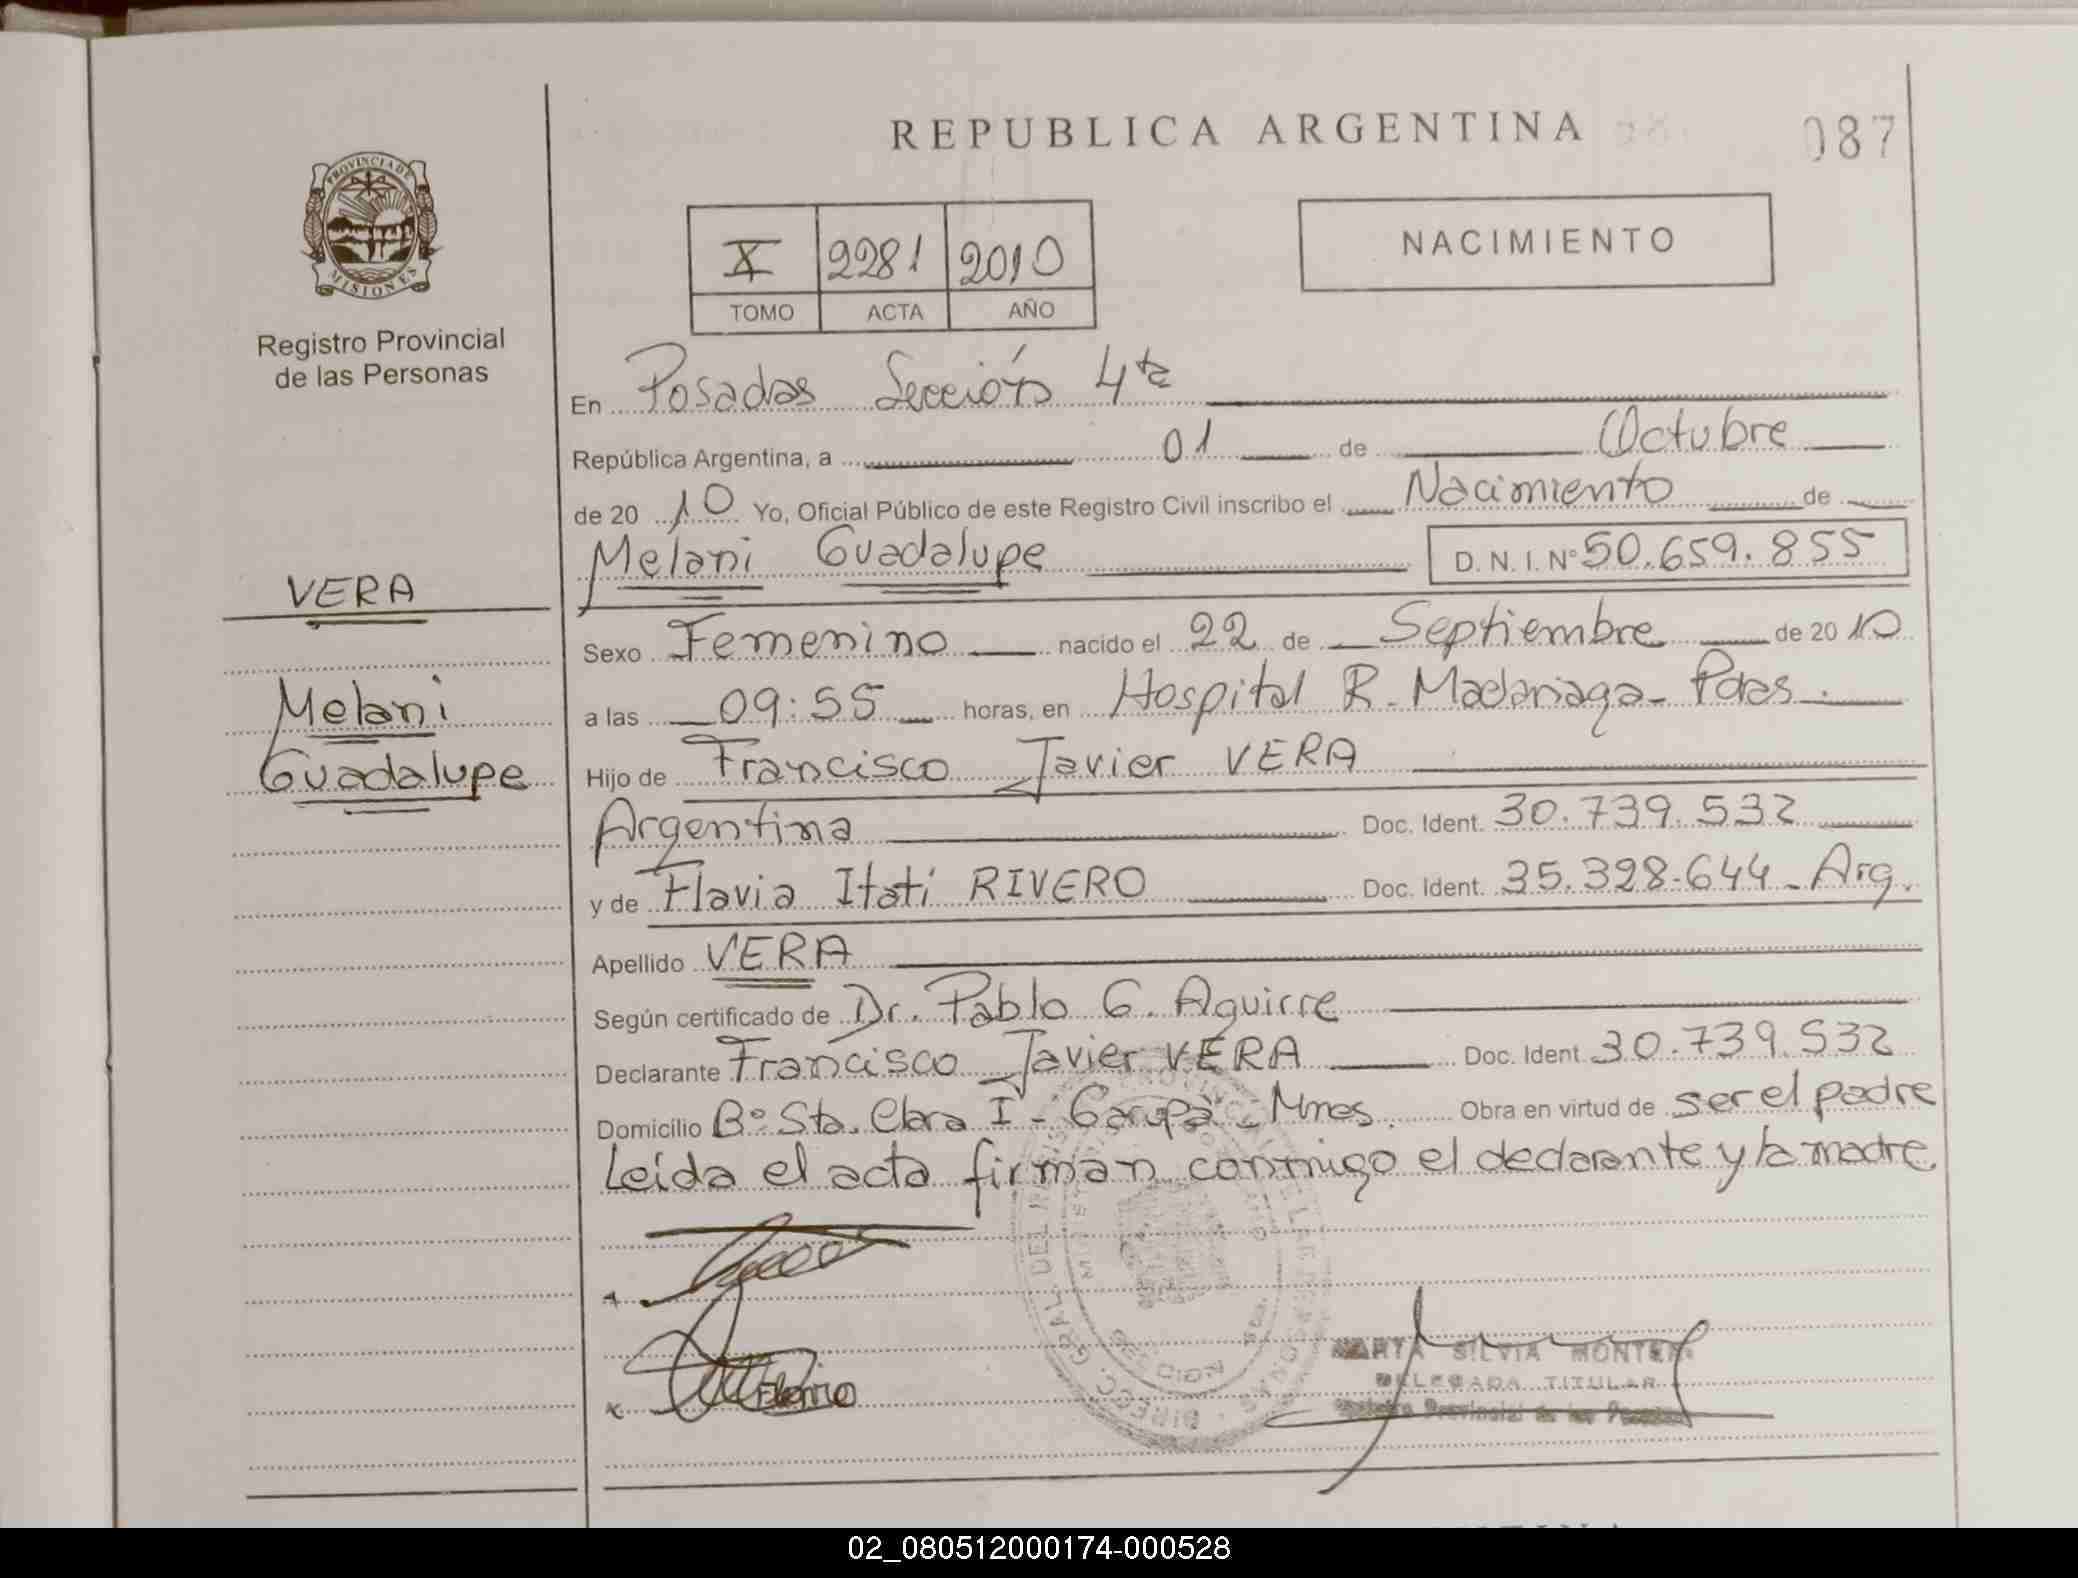 REPUBLICA ARGENTINA
087
PROVINCIA DE
MISIONES
Registro Provincial
de las Personas
X 2281 2010
TOMO ACTA AÑO
NACIMIENTO
En Posadas Sección 4ta
República Argentina, a 01 de Octubre
de 20 10 Yo, Oficial Público de este Registro Civil inscribo el Nacimiento de
Melani Guadalupe D. N. I. Nº 50.659.855
VERA
Melani
Guadalupe
Sexo Femenino nacido el 22 de Septiembre de 20 10
a las 09:55 horas, en Hospital R. Madariaga - Pdas.
Hijo de Francisco Javier VERA
Argentina Doc. Ident. 30.739.532
y de Flavia Itatí RIVERO Doc. Ident. 35.328.644 - Arg.
Apellido VERA
Según certificado de Dr. Pablo G. Aguirre
Declarante Francisco Javier VERA Doc. Ident 30.739.532
Domicilio Bº Sta. Clara I - Garupá - Mnes. Obra en virtud de ser el padre
Leída el acta firman conmigo el declarante y la madre
MARTA SILVIA
DELEGADA TITULAR
Registro Provincial de las Personas
02_080512000174-000528